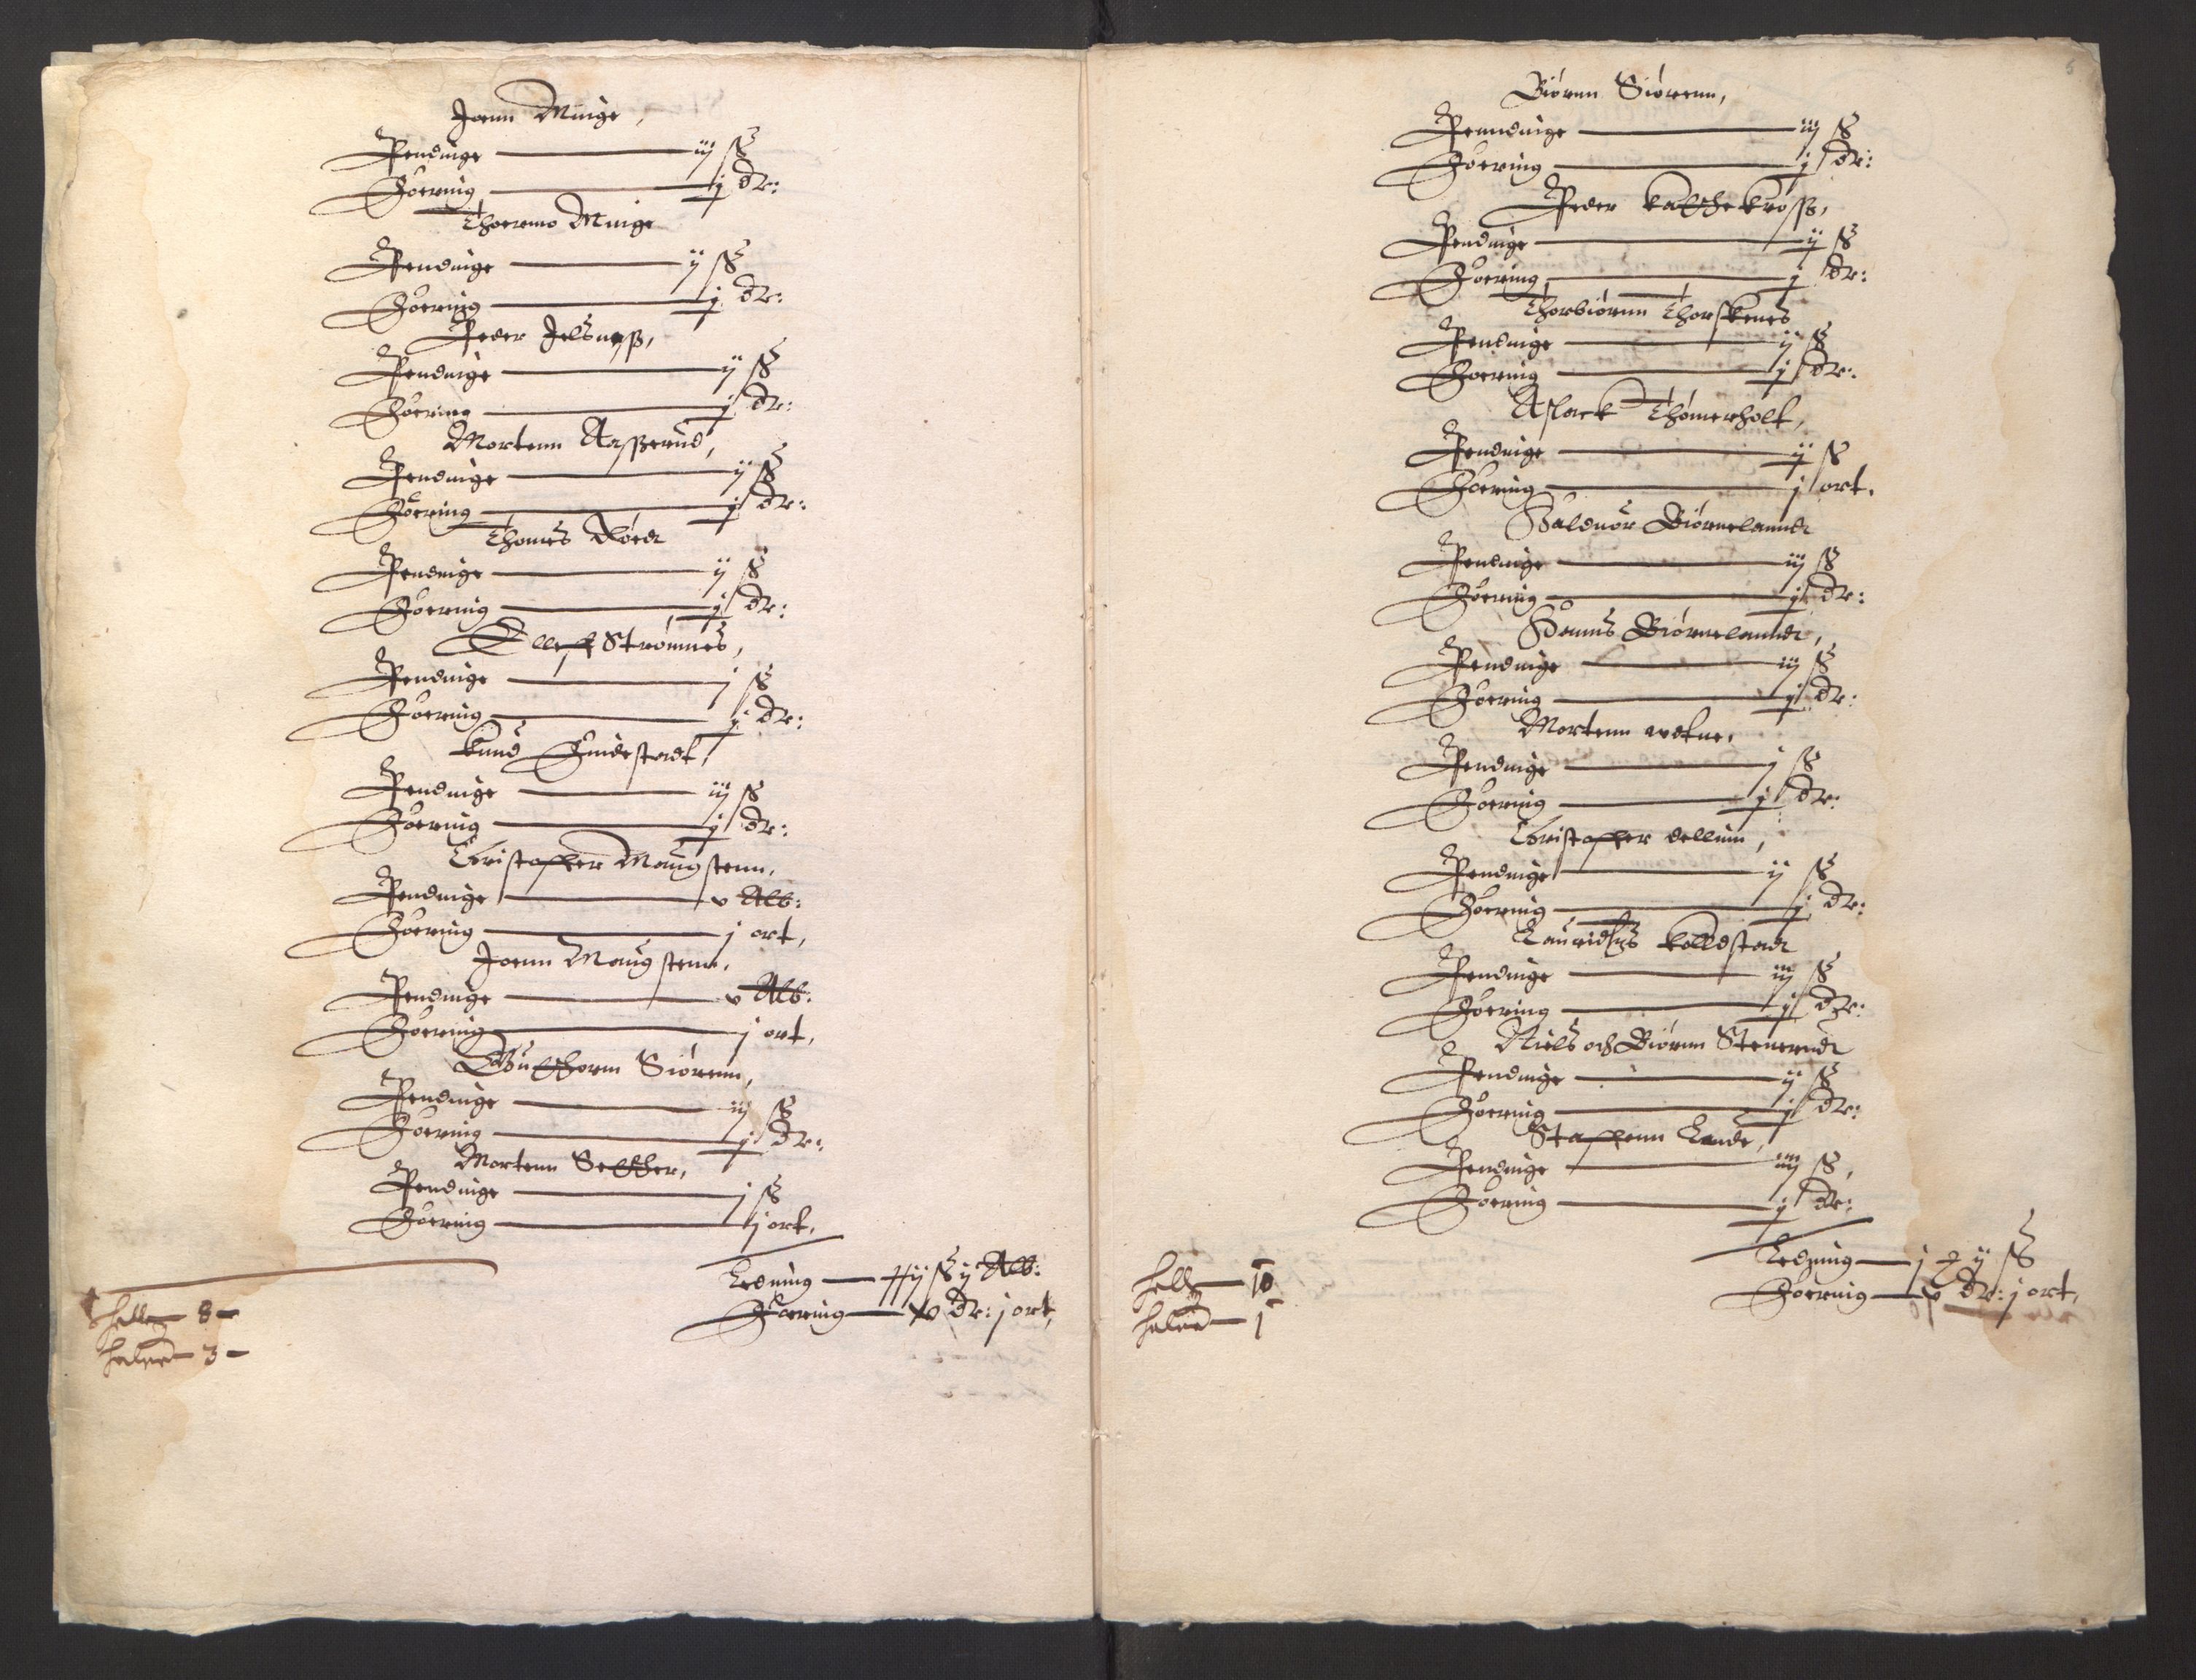 Joenn Minge,
Pendinge — iij ß
Foering — j dr:
Thoermo Minge
Pendinge — ij ß
Foering — j dr:
Peder Jelsneß,
Pendinge — ij ß
Foering — j dr:
Mortenn Aaßerud,
Pendinge — ij ß
Foering — j dr:
Thomes Røed
Pendinge — ij ß
Foering — j dr:
Olleff Strømnes,
Pendinge — j ß
Foering — j dr:
Knud Findestadt,
Pendinge — iij ß
Foering — j dr:
Christoffer Maugstenn,
Pendinge — v Alb:
Foering — j ort,
Joenn Maugstenn,
Pendinge — v Alb:
Foering — j ort,
Gutthorm Siørenn,
Pendinge — iij ß
Foering — j dr:
Mortenn Setther,
Pendinge — j ß
Foering — j ort,
Ledning — ij ß ij Alb:
Foering — dr: j ort,
helle — 8 —
halue — 3 —
Biørnn Siørenn,
Penndinge — iij ß
Foering — j dr:
Peder Katthekroß,
Pendinge — ij ß
Foering — j dr:
Thorbiørnn Thorskenes
Pendinge — ij ß
Foering — j dr:
Aslack Thømerholt,
Pendinge — ij ß
Foering — j ort.
Haluor Biørnelannd
Pendinge — iij ß
Foering — j dr:
Hanns Biørnelannd,
Pendinge — iij ß
Foering — j dr:
Mortenn
Pendinge — j ß
Foering — j dr:
Christoffer Vellum,
Pendinge — ij ß
Foering — j dr:
Lauridtz Kolldstad
Pendinge — iij ß
Foering — j dr:
Niels och Biørnn Stenerud
Pendinge — ij ß
Foering — j dr:
Staffenn Lande,
Pendinge — iiij ß,
Foering — j dr:
Ledning — j ij ß
Foering — v dr: j ort,
helle — 10
halue — 1